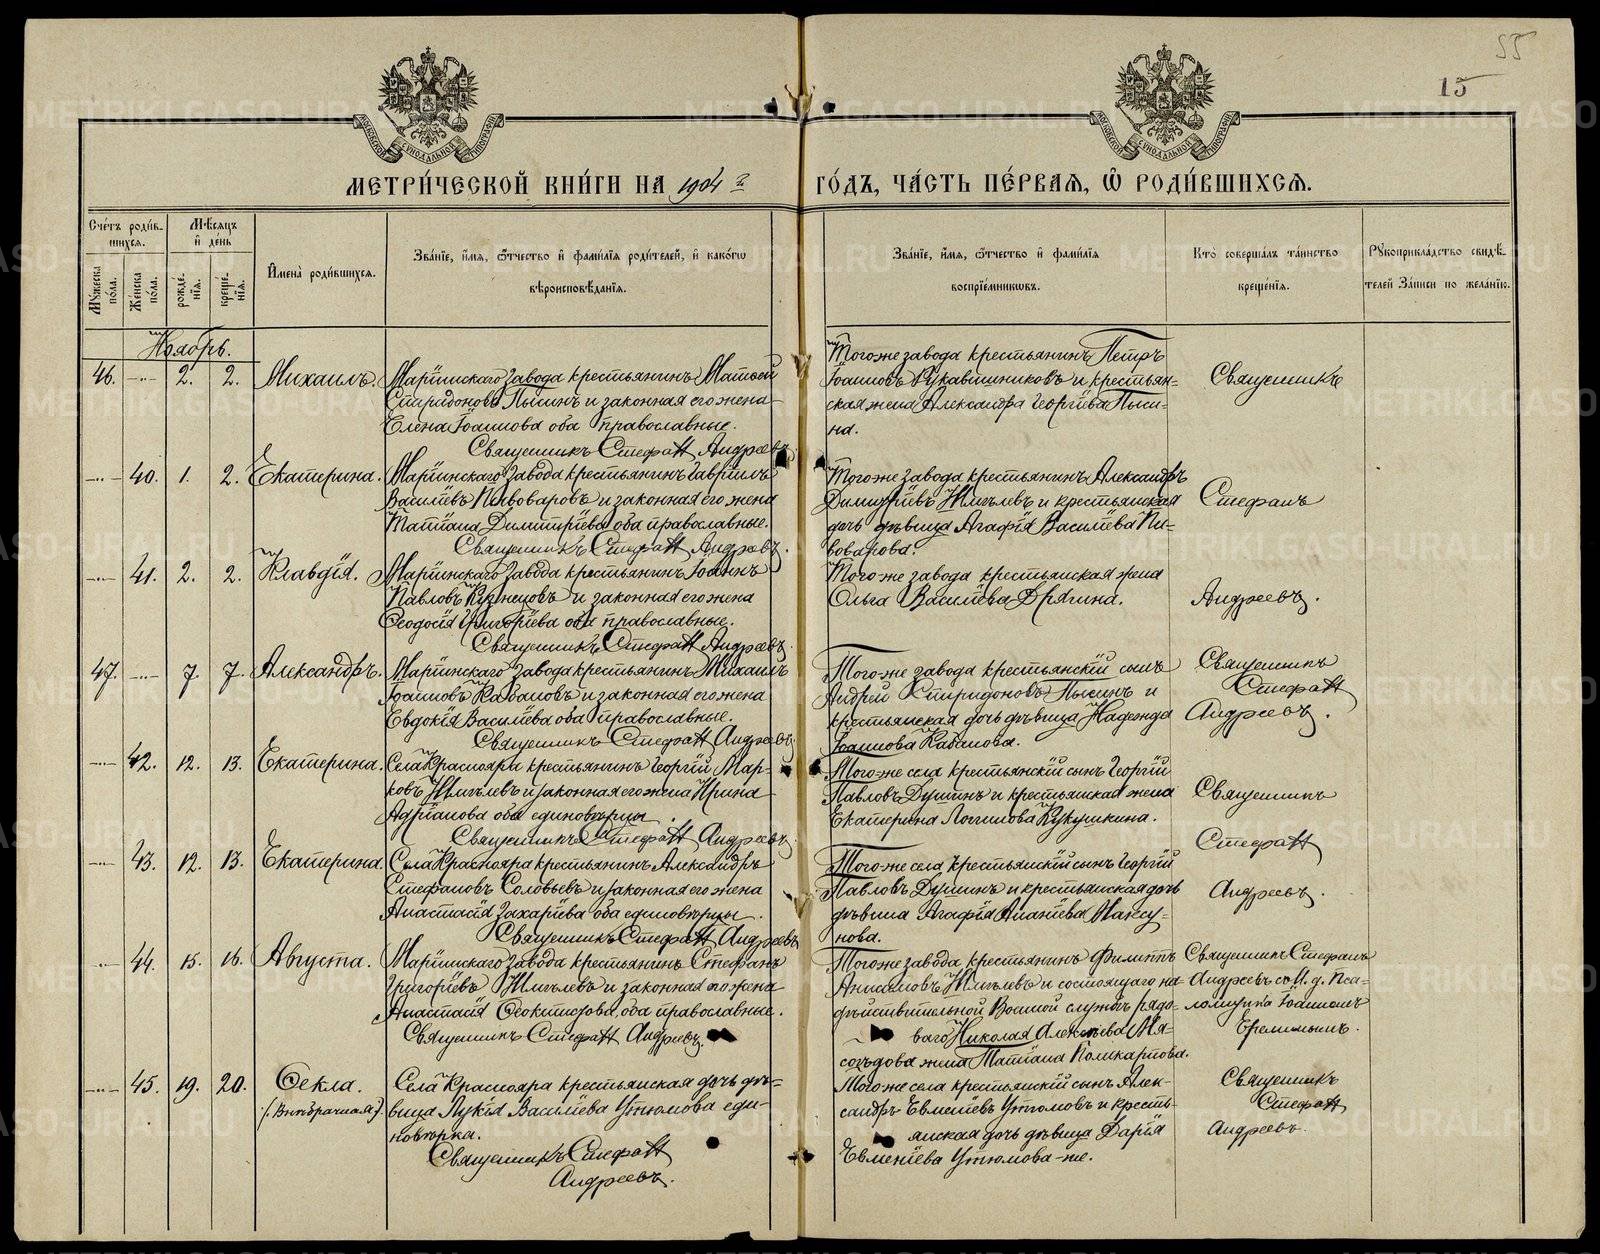 55
15
МЕТРИ́ЧЕСКОЙ КНИ́ГИ НА 1904 й ГО́ДЪ, ЧА́СТЬ ПЕ́РВАЯ, Ѡ РОДИ́ВШИХСЯ.
МОСКОВСКОЙ СУНОДАЛЬНОЙ ТИПОГРАФІИ
МОСКОВСКОЙ СУНОДАЛЬНОЙ ТИПОГРАФІИ
Сче́тъ роди́вшихся.
Мꙋ́жеска по́ла.
Же́нска по́ла.
Мѣ́сяцъ и҆ де́нь
рожде́нїѧ.
креще́нїѧ.
И҆мена̀ роди́вшихсѧ.
Зва́нїе, и҆́мѧ, ѻ҆́тчество и҆ фами́лїѧ роди́телей, и҆ како́гѡ
вѣроисповѣ́данїѧ.
Зва́нїе, и҆́мѧ, ѻ҆́тчество и҆ фами́лїѧ
воспрїе́мникѡвъ.
Кто̀ соверша́лъ та́инство
креще́нїѧ.
Рꙋкоприкла́дство свидѣ́-
телей За́писи по жела́нїю.
Ноябрь.
46. —..— 2. 2. Михаилъ.
Маріинскаго завода крестьянинъ Матвѣй
Спиридоновъ Пысинъ и законная его жена
Елена Іоаннова оба православные.
Священникъ Стефанъ Андреевъ
Того же завода крестьянинъ Петръ
Іоанновъ Рукавишниковъ и крестьян=
ская жена Александра Георгіева Пыси-
на.
Священникъ
—..— 40. 1. 2. Екатерина.
Маріинскаго завода крестьянинъ Гавріилъ
Василіевъ Пивоваровъ и законная его жена
Татіана Димитріева оба православные.
Священникъ Стефанъ Андреевъ.
Того же завода крестьянинъ Александръ
Димитріевъ Жмылевъ и крестьянская
дочь дѣвица Агафія Василіева Пи-
воварова.
Стефанъ
—..— 41. 2. 2. Клавдія.
Маріинскаго завода крестьянинъ Іоаннъ
Павловъ Кузнецовъ и законная его жена
Ѳеодосія Григоріева оба православные.
Священникъ Стефанъ Андреевъ
Того-же завода крестьянская жена
Ольга Василіева Дрягина.
Андреевъ.
47. —..— 7. 7. Александръ.
Маріинскаго завода крестьянинъ Михаилъ
Іоанновъ Кабановъ и законная его жена
Евдокія Василіева оба православные.
Священникъ Стефанъ Андреевъ
Того же завода крестьянскій сынъ
Андрей Спиридоновъ Пысинъ и
крестьянская дочь дѣвица Надежда
Іоаннова Кабанова.
Священникъ
Стефанъ
Андреевъ.
—..— 42. 12. 13. Екатерина.
Села Краснояра крестьянинъ Георгій Мар-
ковъ Жмылевъ и законная его жена Ирина
Адріанова оба единовѣрцы.
Священникъ Стефанъ Андреевъ
Того-же села крестьянскій сынъ Георгій
Павловъ Душинъ и крестьянская жена
Екатерина Логгинова Кукушкина.
Священникъ
—..— 43. 12. 13. Екатерина.
Села Краснояра крестьянинъ Александръ
Стефановъ Соловьевъ и законная его жена
Анастасія Захаріева оба единовѣрцы.
Священникъ Стефанъ Андреевъ
Того-же села крестьянскій сынъ Георгій
Павловъ Душинъ и крестьянская дочь
дѣвица Агафія Ананіева Максу-
нова.
Стефанъ
Андреевъ.
—..— 44. 15. 16. Августа.
Маріинскаго завода крестьянинъ Стефанъ
Григоріевъ Жмылевъ и законная его жена
Анастасія Ѳеоктистова, оба православные.
Священникъ Стефанъ Андреевъ.
Того же завода крестьянинъ Филиппъ
Анисимовъ Жмылевъ и состоящаго на
дѣйствительной Военной службѣ рядо-
ваго Николая Алексѣева Мя-
соѣдова жена Татіана Поликарпова.
Священникъ Стефанъ
Андреевъ со И. д. Пса-
ломщика Іоанномъ
Ереминымъ.
—..— 45. 19. 20. Ѳекла.
(Внѣбрачная).
Села Краснояра крестьянская дочь дѣ=
вица Лукія Василіева Утюмова еди-
новѣрка.
Священникъ Стефанъ
Андреевъ.
Того же села крестьянскій сынъ Алек-
сандръ Евменіевъ Утюмовъ и кресть-
янская дочь дѣвица Дарія
Евменіева Утюмова-же.
Священникъ
Стефанъ
Андреевъ.